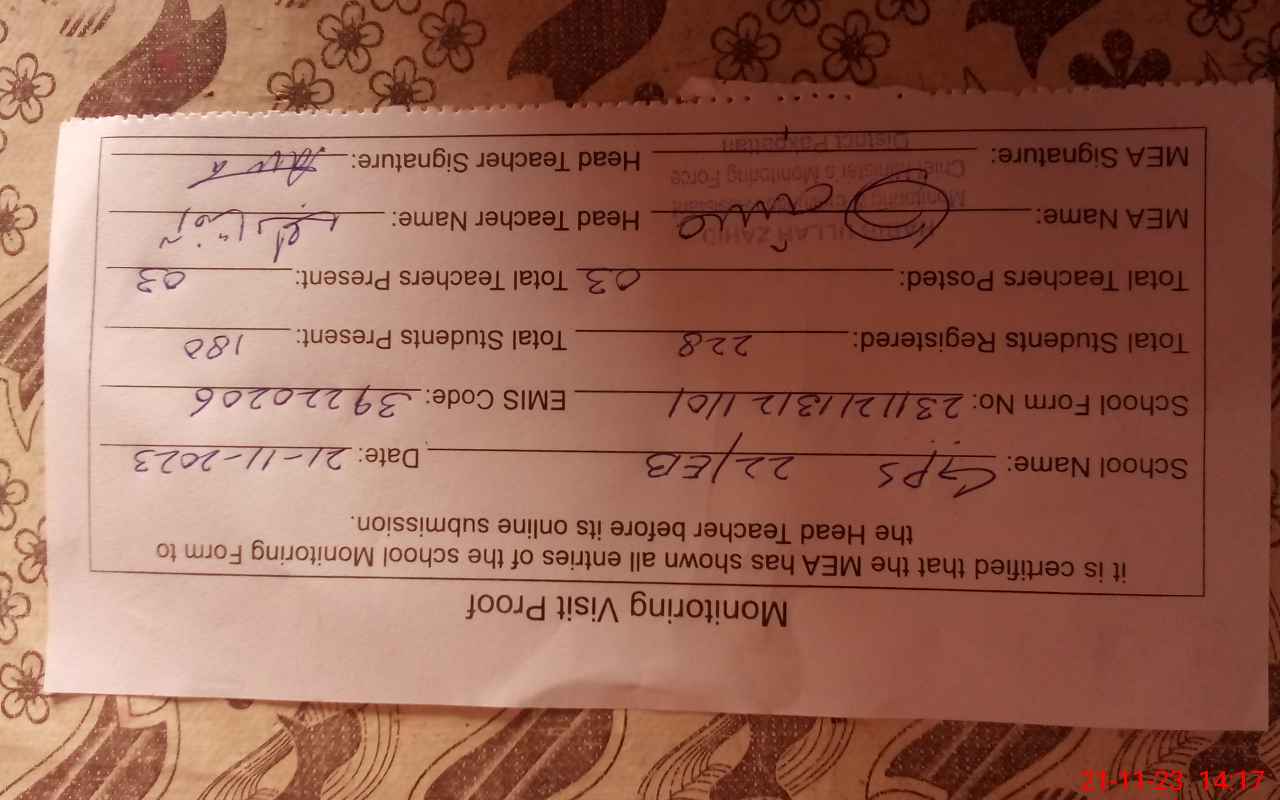 Monitoring Visit Proof
it is certified that the MEA has shown all entries of the school Monitoring Form to
the Head Teacher before its online submission.
School Name: GPS 22/EB Date: 21-11-2023
School Form No: EMIS Code: 39220206
Total Students Registered: 228 Total Students Present: 180
Total Teachers Posted: 03 Total Teachers Present: 03
MEA Name: Head Teacher Name:
ZAHID
Chief Minister's Monitoring Force
MEA Signature: Head Teacher Signature:
District Pakpattan
21-11-23 14:17